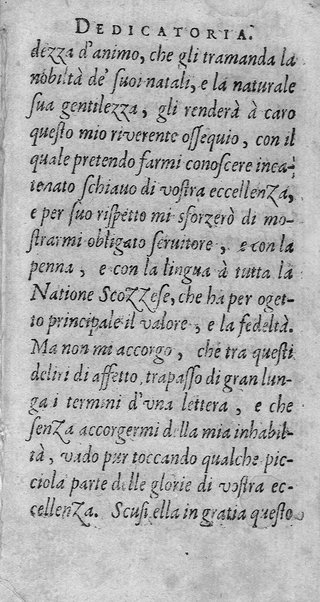 DEDICATORIA.
dezza d'animo, che gli tramanda la
nobiltà de' suoi natali, e la naturale
sua gentilezza, gli renderà à caro
questo mio riverente ossequio, con il
quale pretendo farmi conoscere inca-
tenato schiauo di vostra eccellenza,
e per suo rispetto mi sforzerò di mo-
strarmi obligato seruitore, e con la
penna, e con la lingua à tutta la
Natione Scozzese, che hà per oget-
to principale il valore, e la fedeltà.
Ma non mi accorgo, che tra questi
deliri di affetto, trapasso di gran lun-
ga i termini d'vna lettera, e che
senza accorgermi della mia inhabil-
tà, vado pur toccando qualche pic-
ciola parte delle glorie di vostra ec-
cellenza. Scusi ella in gratia questo